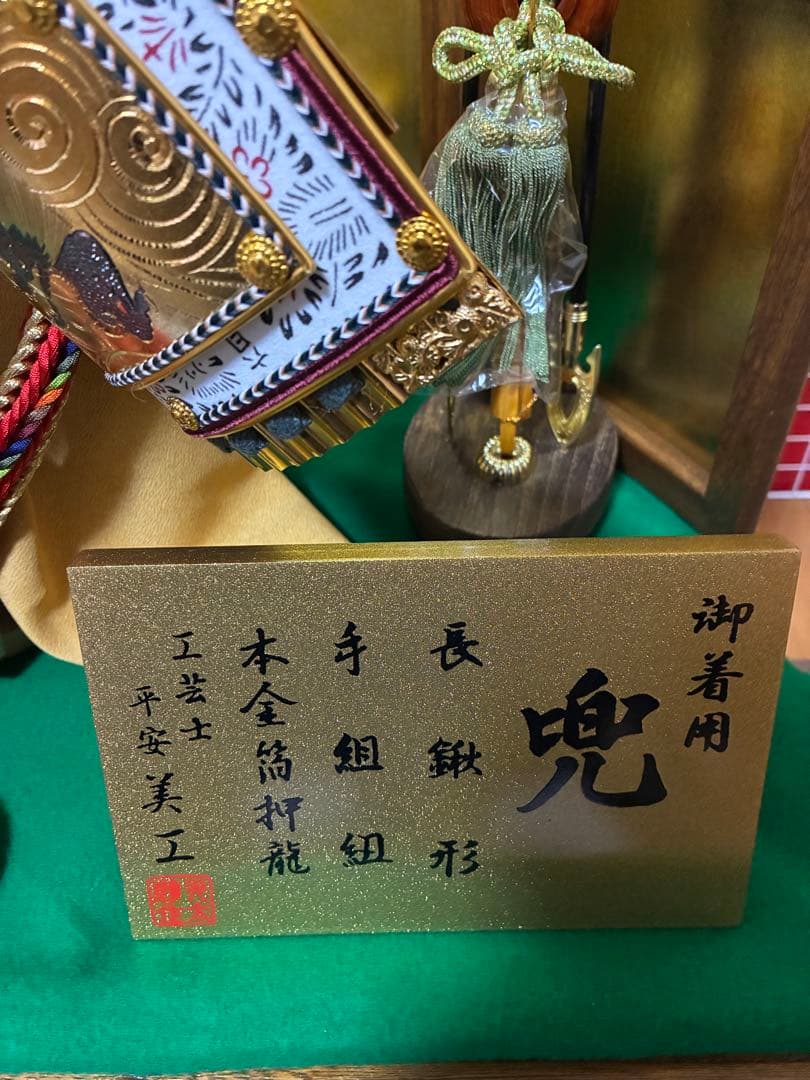 御着用
兜
長鍬形
手組紐
本金箔押龍
工芸士
平安美工
六日